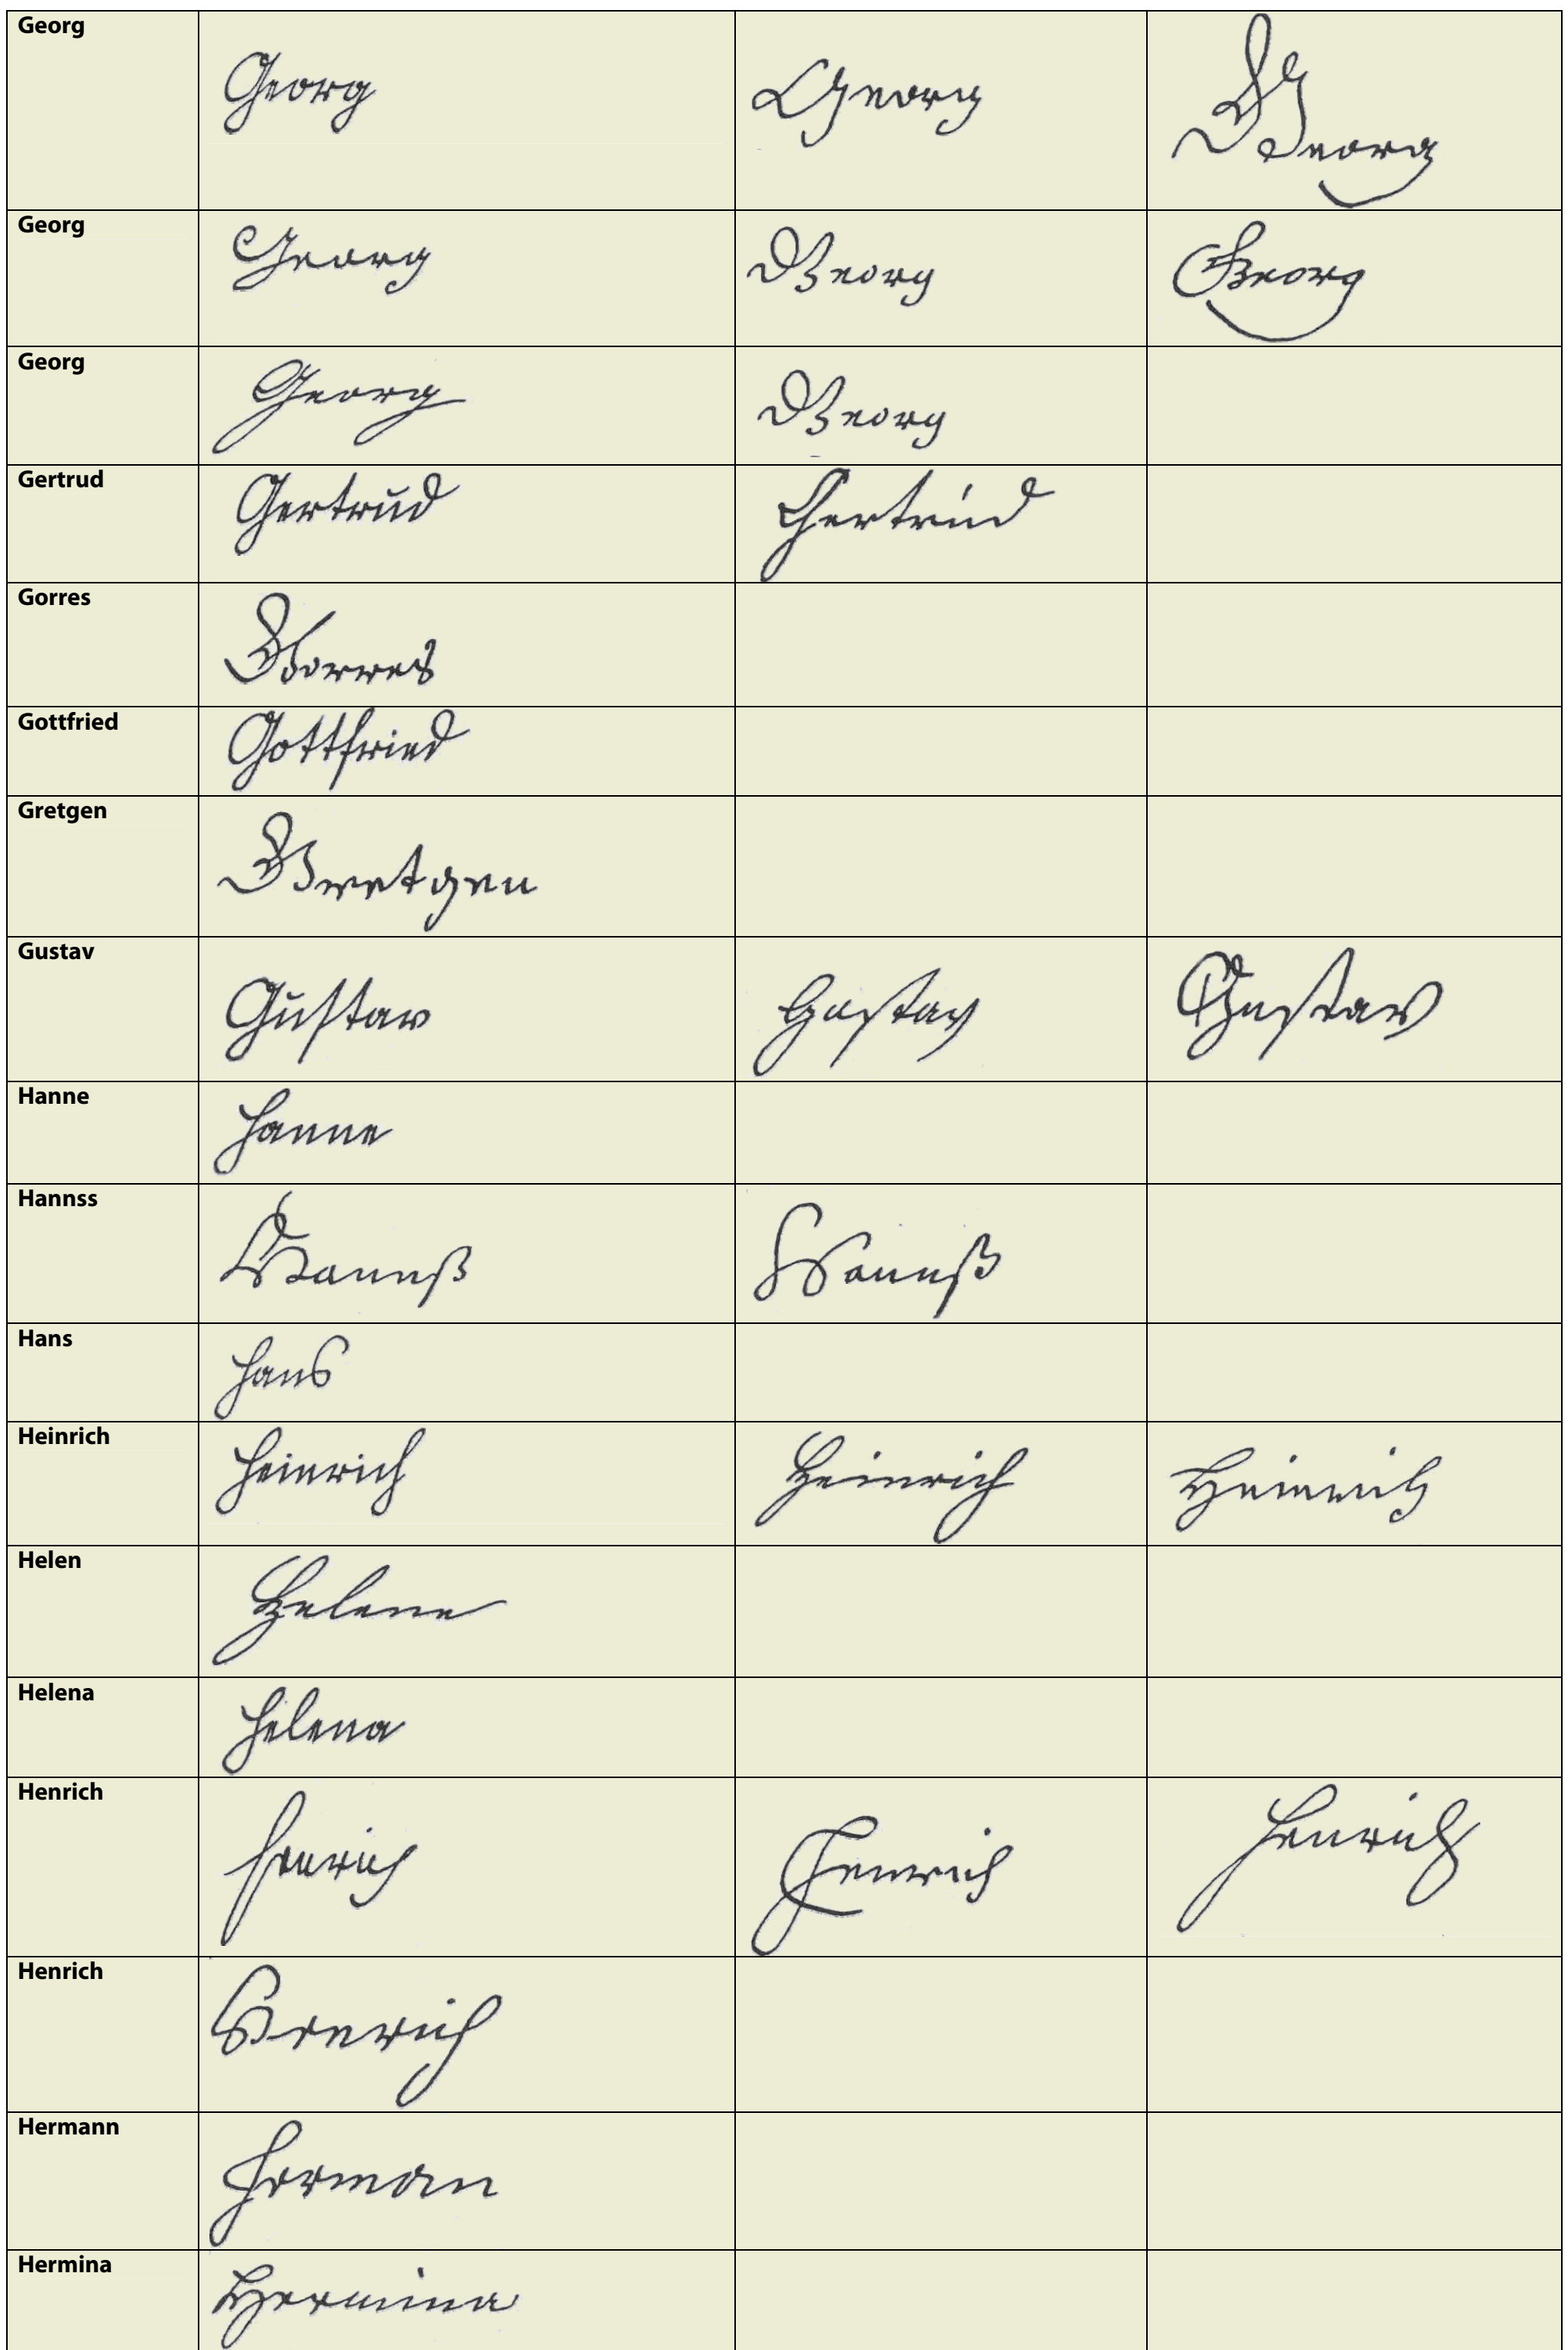 Georg Georg Georg Georg
Georg Georg Georg Georg
Georg Georg Georg
Gertrud Gertrud Gertrud
Gorres Gorres
Gottfried Gottfried
Gretgen Gretgen
Gustav Gustav Gustav Gustav
Hanne Hanne
Hannss Hannß Hannß
Hans Hans
Heinrich Heinrich Heinrich Heinrich
Helen Helene
Helena Helena
Henrich Henrich Henrich Henrich
Henrich Henrich
Hermann Herman
Hermina Hermina